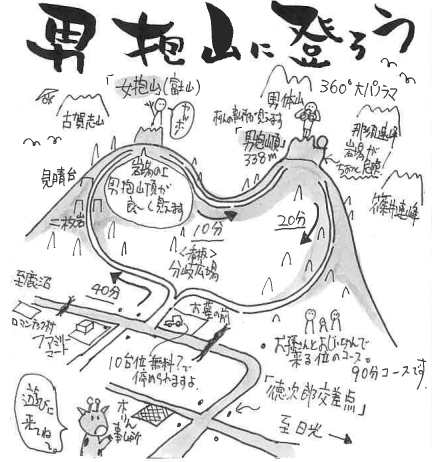 男抱山に登ろう
「女抱山」(富山)
ヤッホー
360°大パノラマ
男体山
古賀志山
「男抱山頂」
338m
那須連峰
岩場が
ちょっと危険
篠井連峰
見晴台
岩場の上
男抱山頂が
良〜く見えます
二枚岩
10分
20分
<赤松>
分岐広場
40分
至鹿沼
ロマンチック村
ファミリー
マート
お墓の前
10台位無料?で
停められますよ。
お孫さんとおじいちゃんで
来る位のコース。
90分コースです
「徳次郎交差点」
至日光
遊びに
来てね。
木りん
事ム所